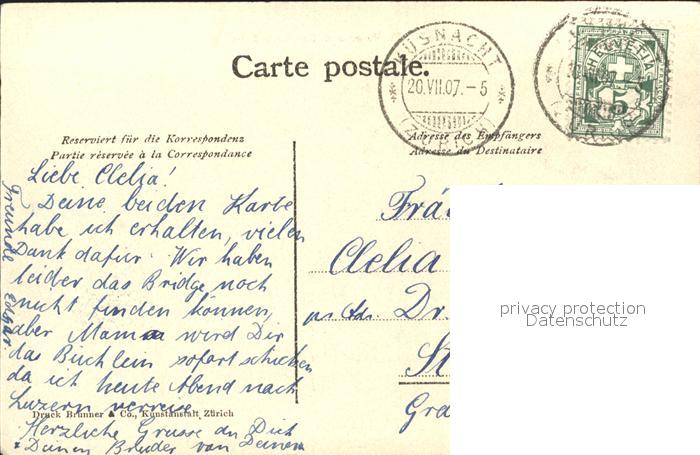 Carte postale.
KUSNACHT
20.VII.07.-5
(ZÜRICH)
HELVETIA
5
Reserviert für die Korrespondenz
Partie réservée à la Correspondance
Adresse des Empfängers
Adresse du Destinataire
Liebe Clelia!
Deine beiden Karte
habe ich erhalten, vielen
Dank dafür. Wir haben
leider das Bridge noch
nicht finden können,
aber Mama wird Dir
das Büchlein sofort schicken
da ich heute Abend nach
Luzern verreise
Herzliche Grüsse an Dich
+ Deinen Bruder von Deinem
Freunde Edgar
Druck Brunner & Co., Kunstanstalt Zürich
Clelia
Dr.
privacy protection
Datenschutz